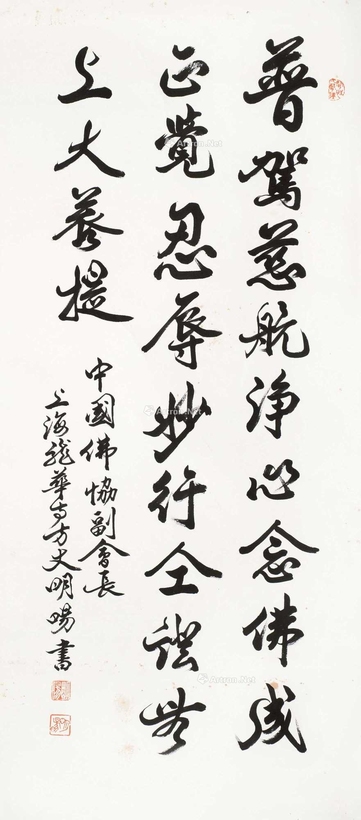 普駕慈航淨心念佛成
正覺忍辱妙行全證無
上大菩提
中國佛協副會長
上海龍華寺方丈明暘書